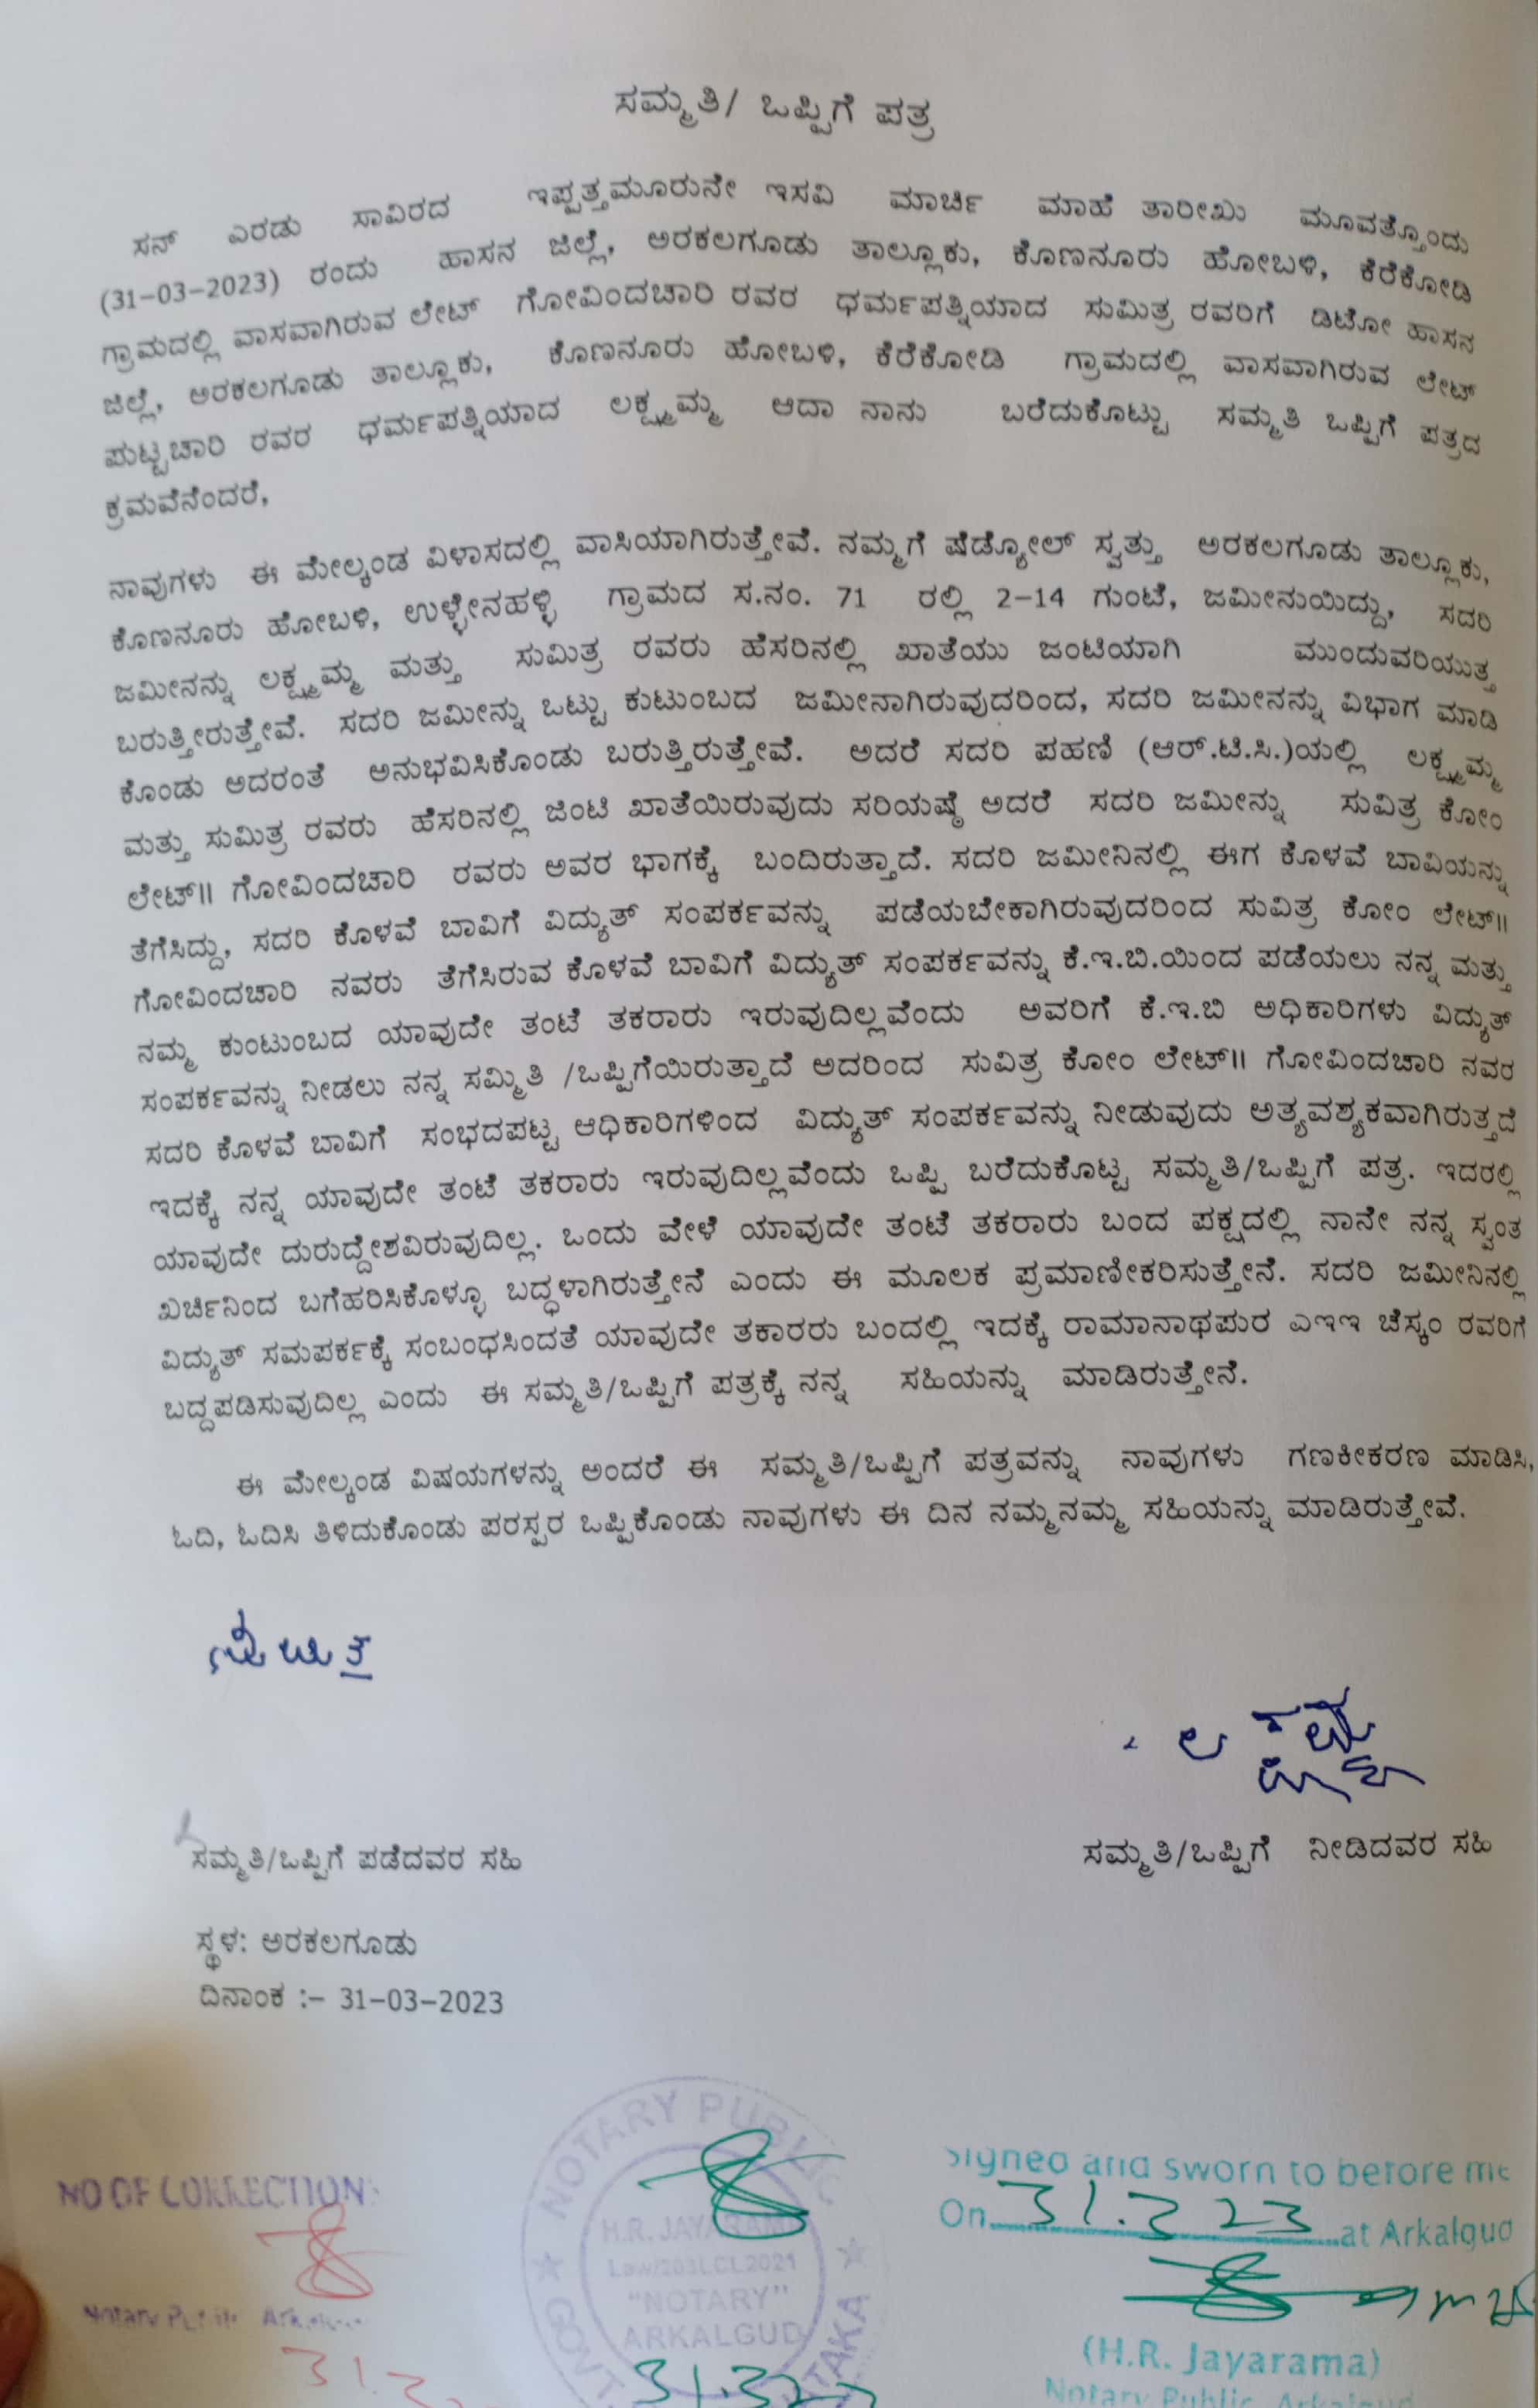 ಸಮ್ಮತಿ/ ಒಪ್ಪಿಗೆ ಪತ್ರ
ಸನ್ ಎರಡು ಸಾವಿರದ ಇಪ್ಪತ್ತಮೂರುನೇ ಇಸವಿ ಮಾರ್ಚಿ ಮಾಹೆ ತಾರೀಖು ಮೂವತ್ತೊಂದು
(31-03-2023) ರಂದು ಹಾಸನ ಜಿಲ್ಲೆ, ಅರಕಲಗೂಡು ತಾಲ್ಲೂಕು, ಕೊಣನೂರು ಹೋಬಳಿ, ಕೆರೆಕೋಡಿ
ಗ್ರಾಮದಲ್ಲಿ ವಾಸವಾಗಿರುವ ಲೇಟ್ ಗೋವಿಂದಚಾರಿ ರವರ ಧರ್ಮಪತ್ನಿಯಾದ ಸುಮಿತ್ರ ರವರಿಗೆ ಡಿಟೋ ಹಾಸನ
ಜಿಲ್ಲೆ, ಅರಕಲಗೂಡು ತಾಲ್ಲೂಕು, ಕೊಣನೂರು ಹೋಬಳಿ, ಕೆರೆಕೋಡಿ ಗ್ರಾಮದಲ್ಲಿ ವಾಸವಾಗಿರುವ ಲೇಟ್
ಪುಟ್ಟಚಾರಿ ರವರ ಧರ್ಮಪತ್ನಿಯಾದ ಲಕ್ಷ್ಮಮ್ಮ ಆದಾ ನಾನು ಬರೆದುಕೊಟ್ಟು ಸಮ್ಮತಿ ಒಪ್ಪಿಗೆ ಪತ್ರದ
ಕ್ರಮವೆನೆಂದರೆ,
ನಾವುಗಳು ಈ ಮೇಲ್ಕಂಡ ವಿಳಾಸದಲ್ಲಿ ವಾಸಿಯಾಗಿರುತ್ತೇವೆ. ನಮ್ಮಗೆ ಷೆಡ್ಯೋಲ್ ಸ್ವತ್ತು ಅರಕಲಗೂಡು ತಾಲ್ಲೂಕು,
ಕೊಣನೂರು ಹೋಬಳಿ, ಉಳ್ಳೇನಹಳ್ಳಿ ಗ್ರಾಮದ ಸ.ನಂ. 71 ರಲ್ಲಿ 2-14 ಗುಂಟೆ, ಜಮೀನುಯಿದ್ದು, ಸದರಿ
ಜಮೀನನ್ನು ಲಕ್ಷ್ಮಮ್ಮ ಮತ್ತು ಸುಮಿತ್ರ ರವರು ಹೆಸರಿನಲ್ಲಿ ಖಾತೆಯು ಜಂಟಿಯಾಗಿ ಮುಂದುವರಿಯುತ್ತ
ಬರುತ್ತೀರುತ್ತೇವೆ. ಸದರಿ ಜಮೀನ್ನು ಒಟ್ಟು ಕುಟುಂಬದ ಜಮೀನಾಗಿರುವುದರಿಂದ, ಸದರಿ ಜಮೀನನ್ನು ವಿಭಾಗ ಮಾಡಿ
ಕೊಂಡು ಅದರಂತೆ ಅನುಭವಿಸಿಕೊಂಡು ಬರುತ್ತಿರುತ್ತೇವೆ. ಅದರೆ ಸದರಿ ಪಹಣಿ (ಆರ್.ಟಿ.ಸಿ.)ಯಲ್ಲಿ ಲಕ್ಷ್ಮಮ್ಮ
ಮತ್ತು ಸುಮಿತ್ರ ರವರು ಹೆಸರಿನಲ್ಲಿ ಜಿಂಟಿ ಖಾತೆಯಿರುವುದು ಸರಿಯಷ್ಠೆ ಅದರೆ ಸದರಿ ಜಮೀನ್ನು ಸುವಿತ್ರ ಕೋಂ
ಲೇಟ್॥ ಗೋವಿಂದಚಾರಿ ರವರು ಅವರ ಭಾಗಕ್ಕೆ ಬಂದಿರುತ್ತಾದೆ. ಸದರಿ ಜಮೀನಿನಲ್ಲಿ ಈಗ ಕೊಳವೆ ಬಾವಿಯನ್ನು
ತೆಗೆಸಿದ್ದು, ಸದರಿ ಕೊಳವೆ ಬಾವಿಗೆ ವಿದ್ಯುತ್ ಸಂಪರ್ಕವನ್ನು ಪಡೆಯಬೇಕಾಗಿರುವುದರಿಂದ ಸುವಿತ್ರ ಕೋಂ ಲೇಟ್॥
ಗೋವಿಂದಚಾರಿ ನವರು ತೆಗೆಸಿರುವ ಕೊಳವೆ ಬಾವಿಗೆ ವಿದ್ಯುತ್ ಸಂಪರ್ಕವನ್ನು ಕೆ.ಇ.ಬಿ.ಯಿಂದ ಪಡೆಯಲು ನನ್ನ ಮತ್ತು
ನಮ್ಮ ಕುಂಟುಂಬದ ಯಾವುದೇ ತಂಟೆ ತಕರಾರು ಇರುವುದಿಲ್ಲವೆಂದು ಅವರಿಗೆ ಕೆ.ಇ.ಬಿ ಅಧಿಕಾರಿಗಳು ವಿದ್ಯುತ್
ಸಂಪರ್ಕವನ್ನು ನೀಡಲು ನನ್ನ ಸಮ್ಮಿತಿ /ಒಪ್ಪಿಗೆಯಿರುತ್ತಾದೆ ಅದರಿಂದ ಸುವಿತ್ರ ಕೋಂ ಲೇಟ್॥ ಗೋವಿಂದಚಾರಿ ನವರ
ಸದರಿ ಕೊಳವೆ ಬಾವಿಗೆ ಸಂಭದಪಟ್ಟ ಆಧಿಕಾರಿಗಳಿಂದ ವಿದ್ಯುತ್ ಸಂಪರ್ಕವನ್ನು ನೀಡುವುದು ಅತ್ಯವಶ್ಯಕವಾಗಿರುತ್ತದೆ
ಇದಕ್ಕೆ ನನ್ನ ಯಾವುದೇ ತಂಟೆ ತಕರಾರು ಇರುವುದಿಲ್ಲವೆಂದು ಒಪ್ಪಿ ಬರೆದುಕೊಟ್ಟ ಸಮ್ಮತಿ/ಒಪ್ಪಿಗೆ ಪತ್ರ. ಇದರಲ್ಲಿ
ಯಾವುದೇ ದುರುದ್ದೇಶವಿರುವುದಿಲ್ಲ. ಒಂದು ವೇಳೆ ಯಾವುದೇ ತಂಟೆ ತಕರಾರು ಬಂದ ಪಕ್ಷದಲ್ಲಿ ನಾನೇ ನನ್ನ ಸ್ವಂತ
ಖರ್ಚಿನಿಂದ ಬಗೆಹರಿಸಿಕೊಳ್ಳೂ ಬದ್ಧಳಾಗಿರುತ್ತೇನೆ ಎಂದು ಈ ಮೂಲಕ ಪ್ರಮಾಣೀಕರಿಸುತ್ತೇನೆ. ಸದರಿ ಜಮೀನಿನಲ್ಲಿ
ವಿದ್ಯುತ್ ಸಮಪರ್ಕಕ್ಕೆ ಸಂಬಂಧಸಿಂದತೆ ಯಾವುದೇ ತಕಾರರು ಬಂದಲ್ಲಿ ಇದಕ್ಕೆ ರಾಮಾನಾಥಪುರ ಎಇಇ ಚೆಸ್ಕಂ ರವರಿಗೆ
ಬದ್ದಪಡಿಸುವುದಿಲ್ಲ ಎಂದು ಈ ಸಮ್ಮತಿ/ಒಪ್ಪಿಗೆ ಪತ್ರಕ್ಕೆ ನನ್ನ ಸಹಿಯನ್ನು ಮಾಡಿರುತ್ತೇನೆ.
ಈ ಮೇಲ್ಕಂಡ ವಿಷಯಗಳನ್ನು ಅಂದರೆ ಈ ಸಮ್ಮತಿ/ಒಪ್ಪಿಗೆ ಪತ್ರವನ್ನು ನಾವುಗಳು ಗಣಕೀಕರಣ ಮಾಡಿಸಿ,
ಓದಿ, ಓದಿಸಿ ತಿಳಿದುಕೊಂಡು ಪರಸ್ಪರ ಒಪ್ಪಿಕೊಂಡು ನಾವುಗಳು ಈ ದಿನ ನಮ್ಮನಮ್ಮ ಸಹಿಯನ್ನು ಮಾಡಿರುತ್ತೇವೆ.
ಸಮ್ಮತಿ/ಒಪ್ಪಿಗೆ ಪಡೆದವರ ಸಹಿ
ಸಮ್ಮತಿ/ಒಪ್ಪಿಗೆ ನೀಡಿದವರ ಸಹಿ
ಸ್ಥಳ: ಅರಕಲಗೂಡು
ದಿನಾಂಕ :- 31-03-2023
NO OF CORRECTION:
Notary Public
31.3
NOTARY PUBLIC
H.R. JAYARAMA
"NOTARY"
ARKALGUD
31.3.23
Signed and sworn to before me
On 31.3 23 at Arkalgud
(H.R. Jayarama)
Notary Public, Arkalgud